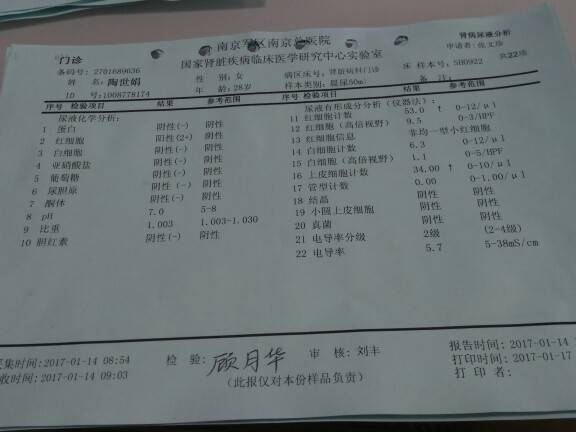 南京军区南京总医院
肾病尿液分析
国家肾脏疾病临床医学研究中心实验室
申请者:
门诊
条码号: 2701689036
姓 名: 陶世娟
ID 号:1008778174
性 别: 女
年 龄: 28岁
病区床号: 肾脏病科门诊
样本类别: 晨尿50ml
床 样本号: SH0922
备 注:
共22项
序号 检验项目 结果 参考范围
尿液化学分析:
1 蛋白 阴性(-) 阴性
2 红细胞 阳性(2+) 阴性
3 白细胞 阴性(-) 阴性
4 亚硝酸盐 阴性(-) 阴性
5 葡萄糖 阴性(-) 阴性
6 尿胆原 阴性(-) 阴性
7 酮体 阴性(-) 阴性
8 pH 7.0 5-8
9 比重 1.003 1.003-1.030
10 胆红素 阴性(-) 阴性
序号 检验项目 结果 参考范围
尿液有形成分分析(仪器法):
11 红细胞计数 53.0 ↑ 0-12/ul
12 红细胞(高倍视野) 9.5 0-3/HPF
13 红细胞信息 非均一型小红细胞
14 白细胞计数 6.3 0-12/ul
15 白细胞(高倍视野) 1.1 0-5/HPF
16 上皮细胞计数 34.00 ↑ 0-10/ul
17 管型计数 0.00 0-1.00/ul
18 结晶 阴性 阴性
19 小圆上皮细胞 阴性 阴性
20 真菌 阴性 阴性
21 电导率分级 2级 (2-4级)
22 电导率 5.7 5-38mS/cm
采集时间:2017-01-14 08:54
接收时间:2017-01-14 09:03
检 验: 顾月华
审 核: 刘丰
(此报仅对本份样品负责)
报告时间:2017-01-14
打印时间:2017-01-17
打 印 者: